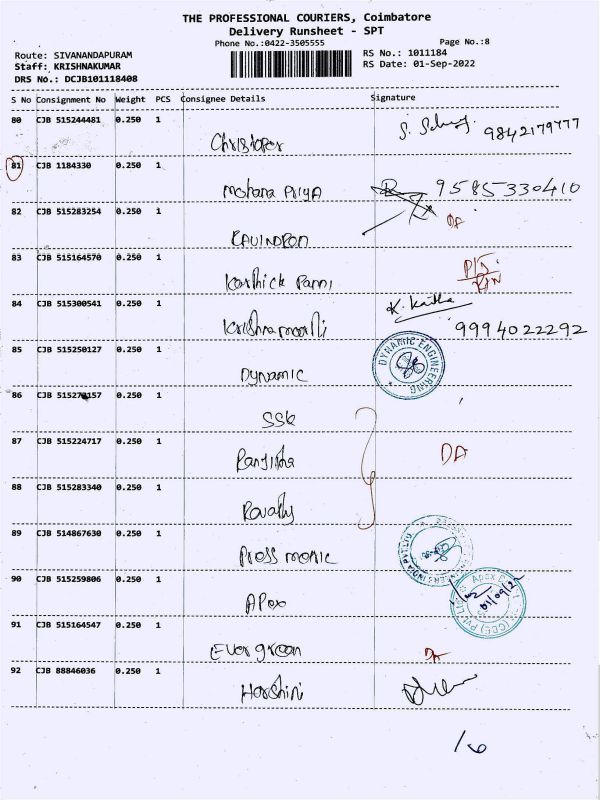 THE PROFESSIONAL COURIERS, Coimbatore
Delivery Runsheet - SPT
Phone No.:0422-3505555 Page No.:8
Route: SIVANANDAPURAM RS No.: 1011184
Staff: KRISHNAKUMAR RS Date: 01-Sep-2022
DRS No.: DCJB101118408
S No Consignment No Weight PCS Consignee Details Signature
80 CJB 515244481 0.250 1
Christoper 9842179777
81 CJB 1184330 0.250 1
Mohana Priya 9585330410
82 CJB 515283254 0.250 1 DA
RAVINDRON
83 CJB 515164570 0.250 1
Karthick Panni
84 CJB 515300541 0.250 1 K. Kavitha
Krishnamoorthi 9994022292
85 CJB 515250127 0.250 1 DYNAMIC ENGINEERING
Dynamic
86 CJB 515271157 0.250 1
SSK
87 CJB 515224717 0.250 1 DA
Ranjitha
88 CJB 515283340 0.250 1
89 CJB 514867630 0.250 1
Press monic
90 CJB 515259806 0.250 1 01/09/22
Apex
91 CJB 515164547 0.250 1
Evergreen DA
92 CJB 88846036 0.250 1
Harshini